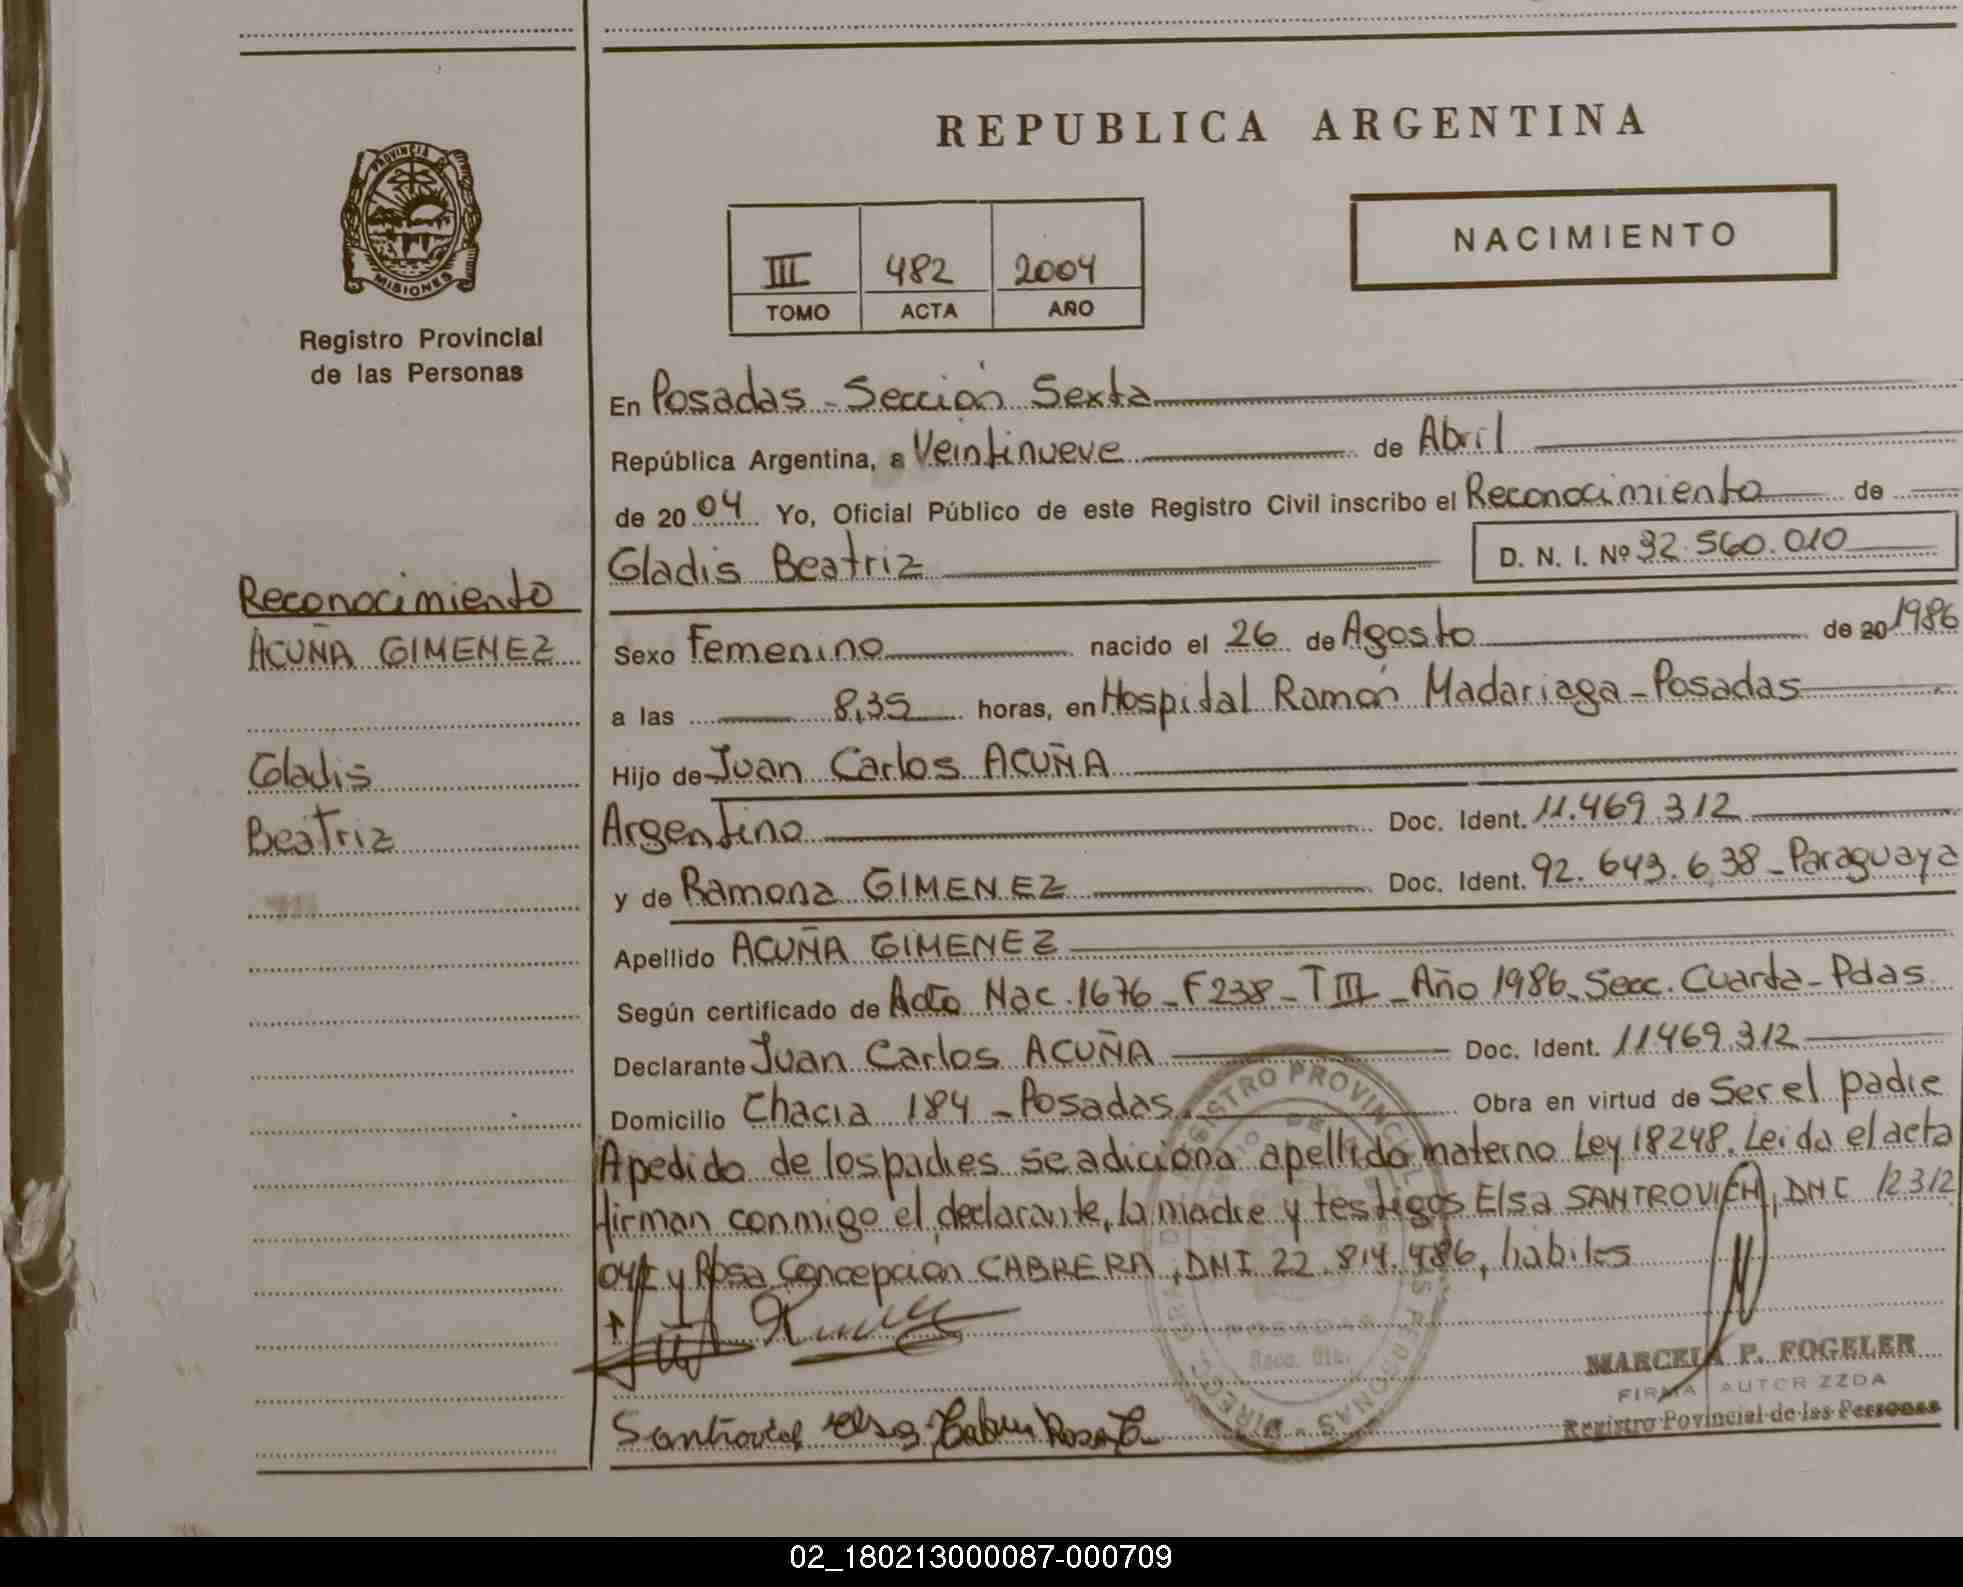 REPUBLICA ARGENTINA
NACIMIENTO
III 482 2004
TOMO ACTA AÑO
PROVINCIA DE
MISIONES
Registro Provincial
de las Personas
En Posadas - Sección Sexta
República Argentina, a Veintinueve de Abril
de 20 04 Yo, Oficial Público de este Registro Civil inscribo el Reconocimiento de
Gladis Beatriz D. N. I. Nº 32.560.010
Reconocimiento
ACUÑA GIMENEZ
Gladis
Beatriz
Sexo Femenino nacido el 26 de Agosto de 20 1986
a las 8,35 horas, en Hospital Ramón Madariaga - Posadas
Hijo de Juan Carlos ACUÑA
Argentino Doc. Ident. 11.469.312
y de Ramona GIMENEZ Doc. Ident. 92.643.638 - Paraguaya
Apellido ACUÑA GIMENEZ
Según certificado de Acta Nac. 1676 - F 238 - T III - Año 1986. Secc. Cuarta - Pdas.
Declarante Juan Carlos ACUÑA Doc. Ident. 11469.312
Domicilio Chacra 184 - Posadas. Obra en virtud de Ser el padre
A pedido de los padres se adiciona apellido materno Ley 18248. Leida el acta
firman conmigo el declarante, la madre y testigos Elsa SANTROVICH, DNI 12312
04 y Rosa Concepcion CABRERA, DNI 22.814.486, habiles
REGISTRO PROVINCIAL DE LAS PERSONAS
POSADAS
Secc. 6ta.
MARCELA P. FOGELER
FIRMA AUTORIZADA
Registro Povincial de las Personas
Santrovich Elsa
02_180213000087-000709